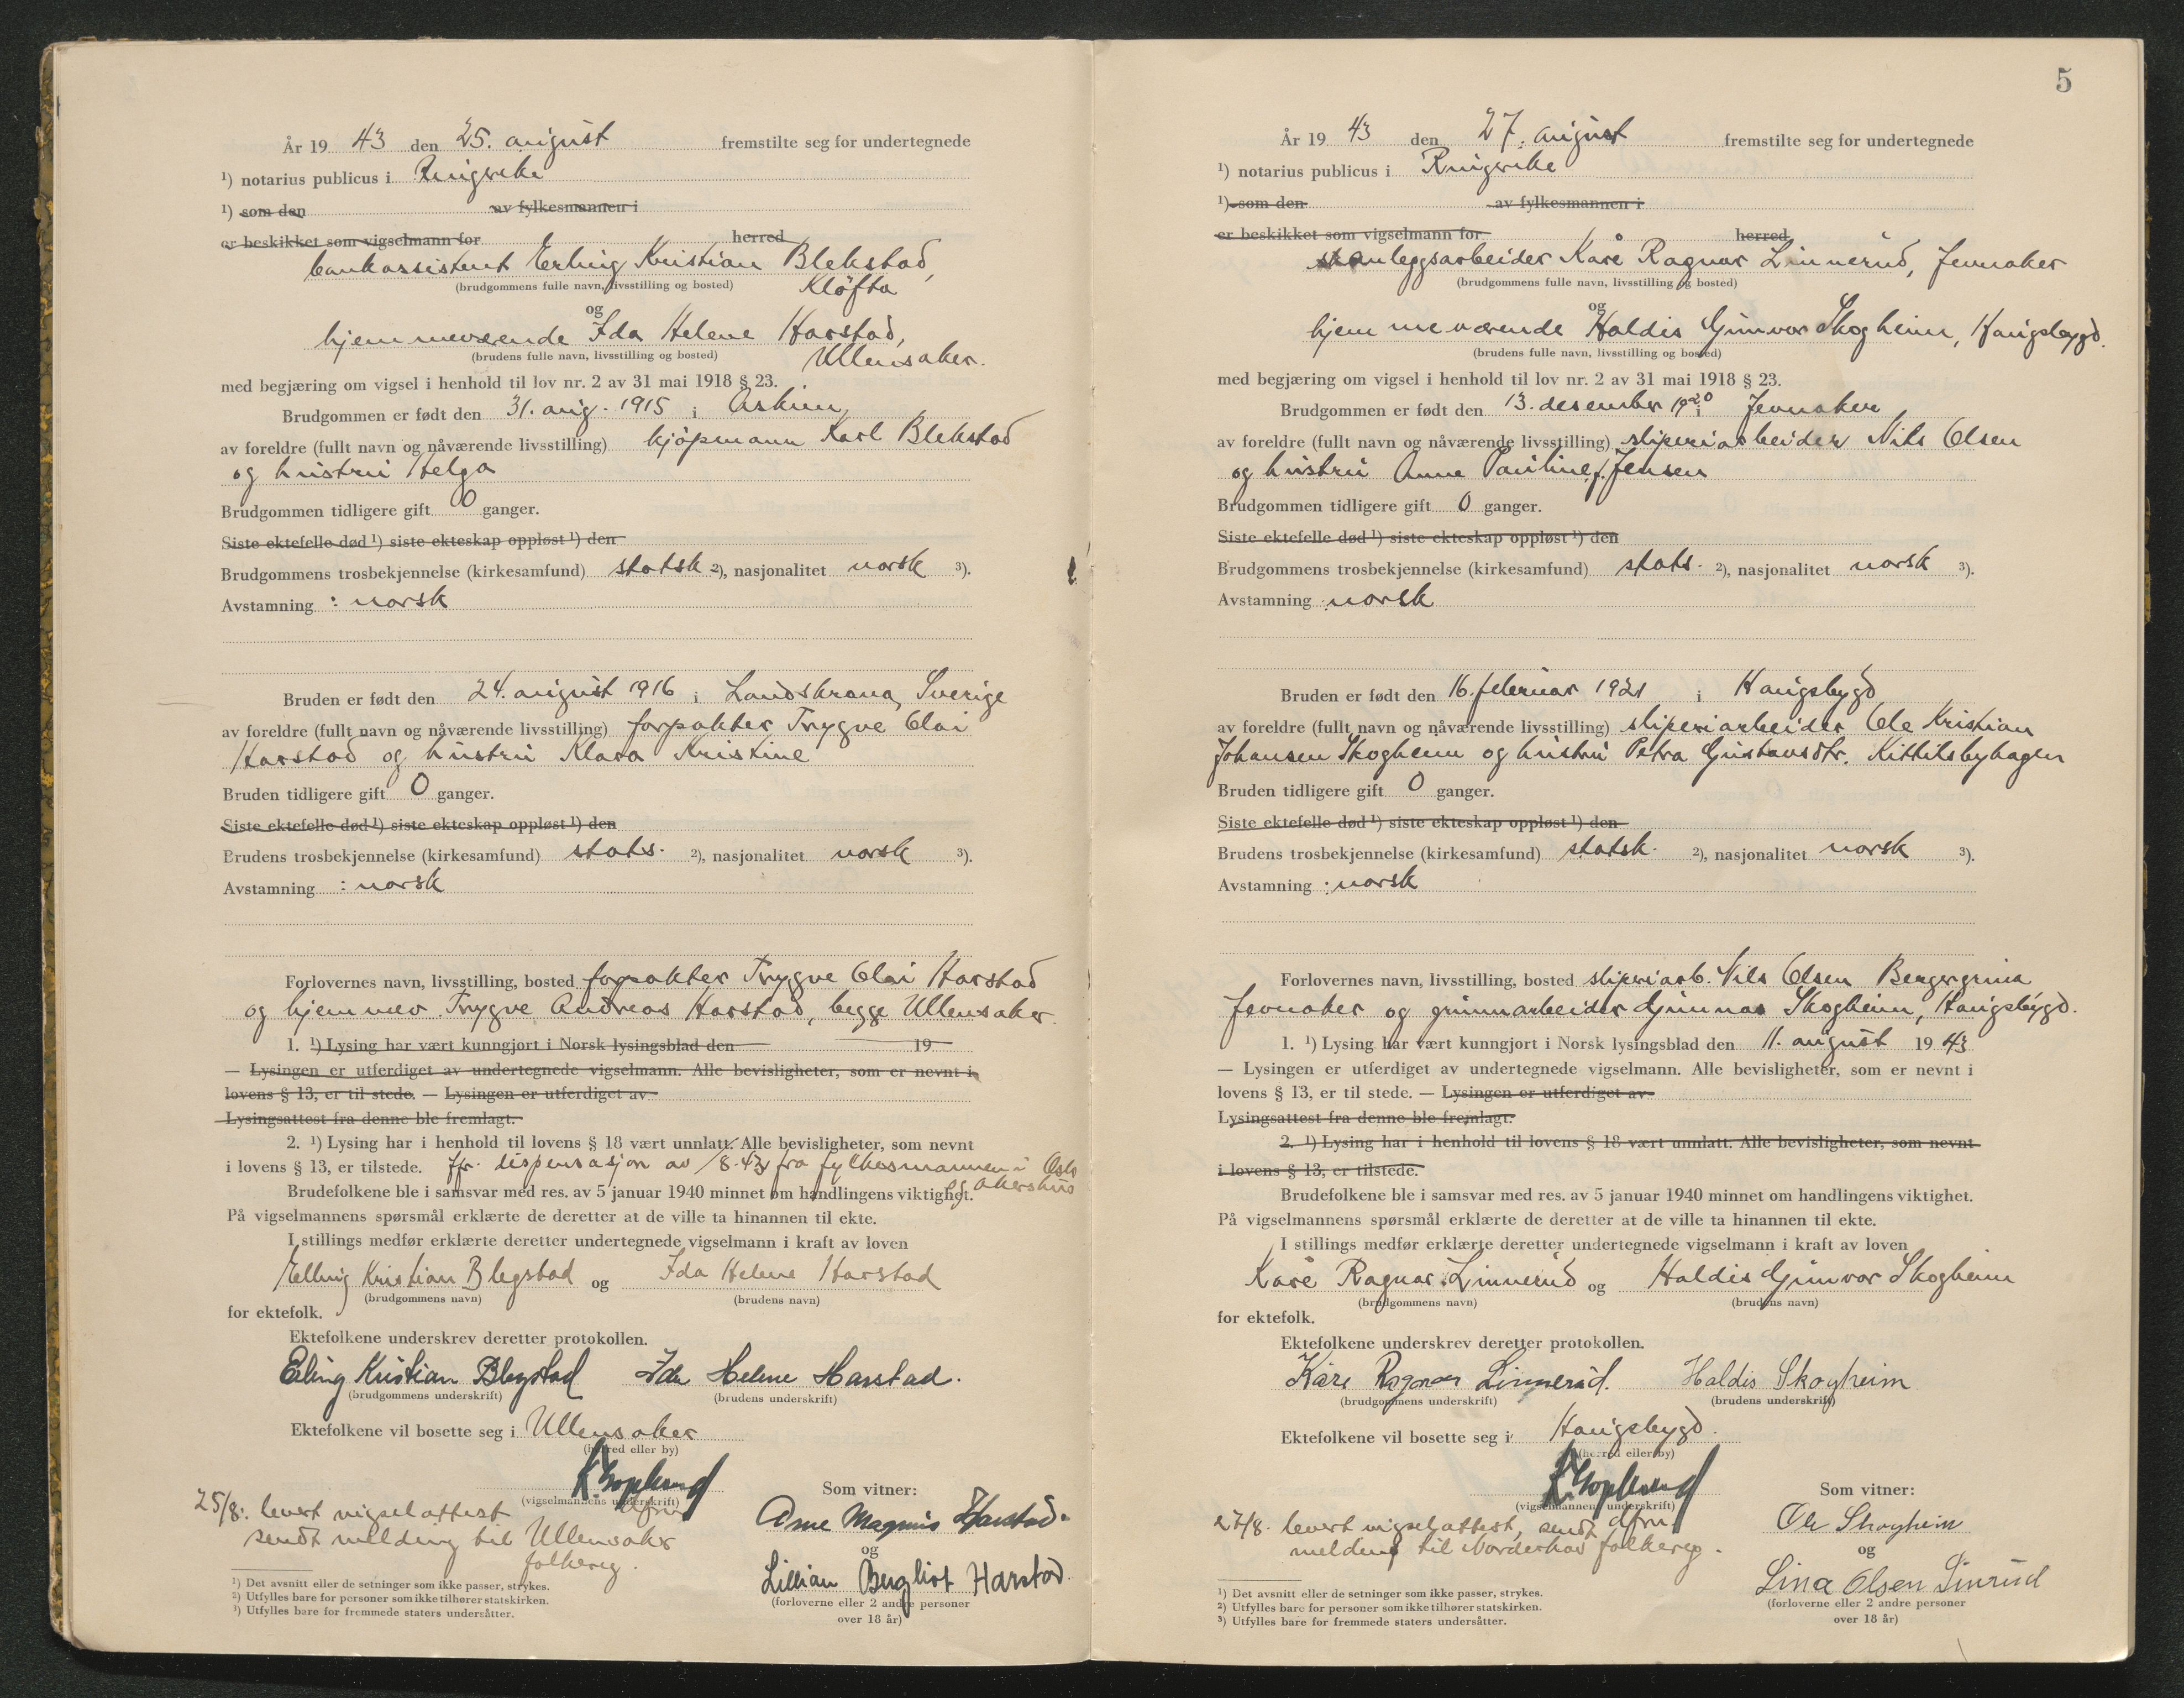 År 19 43 den 25. august fremstilte seg for undertegnede
¹) notarius publicus i Ringerike
¹) som den av fylkesmannen i
er beskikket som vigselmann for herred
bankassistent Erling Kristian Blekstad,
(brudgommens fulle navn, livsstilling og bosted) Kløfta
og
hjemmeværende Ida Helene Harstad,
(brudens fulle navn, livsstilling og bosted) Ullensaker.
med begjæring om vigsel i henhold til lov nr. 2 av 31 mai 1918 § 23.
Brudgommen er født den 31. aug. 1915 i Askim
av foreldre (fullt navn og nåværende livsstilling) kjøpmann Karl Blekstad
og hustru Helga
Brudgommen tidligere gift 0 ganger.
Siste ektefelle død ¹) siste ekteskap oppløst ¹) den
Brudgommens trosbekjennelse (kirkesamfund) statsk ²), nasjonalitet norsk ³).
Avstamning : norsk
Bruden er født den 24. august 1916 i Landskrona, Sverige
av foreldre (fullt navn og nåværende livsstilling) forpakter Trygve Olai
Harstad og hustru Klara Kristine
Bruden tidligere gift 0 ganger.
Siste ektefelle død ¹) siste ekteskap oppløst ¹) den
Brudens trosbekjennelse (kirkesamfund) stats. ²), nasjonalitet norsk ³).
Avstamning : norsk
Forlovernes navn, livsstilling, bosted forpakter Trygve Olai Harstad
og hjemmev. Trygve Andreas Harstad, begge Ullensaker.
1. ¹) Lysing har vært kunngjort i Norsk lysingsblad den 19
— Lysingen er utferdiget av undertegnede vigselmann. Alle bevisligheter, som er nevnt i
lovens § 13, er til stede. — Lysingen er utferdiget av
Lysingsattest fra denne ble fremlagt.
2. ¹) Lysing har i henhold til lovens § 18 vært unnlatt. Alle bevisligheter, som nevnt
i lovens § 13, er tilstede. Jfr. dispensasjon av /8-43 fra fylkesmannen i Oslo
og Akershus
Brudefolkene ble i samsvar med res. av 5 januar 1940 minnet om handlingens viktighet.
På vigselmannens spørsmål erklærte de deretter at de ville ta hinannen til ekte.
I stillings medfør erklærte deretter undertegnede vigselmann i kraft av loven
Kristian Blegstad og Ida Helene Harstad
(brudgommens navn) (brudens navn)
for ektefolk.
Ektefolkene underskrev deretter protokollen.
Erling Kristian Blegstad Ida Helene Harstad.
(brudgommens underskrift) (brudens underskrift)
Ektefolkene vil bosette seg i Ullensaker
(herred eller by)
(vigselmannens underskrift) Som vitner:
25/8: levert vigselattest
sendt melding til Ullensaker
folkereg.
Arne Magnus Harstad.
og
Lillian Bergliot Harstad.
(forloverne eller 2 andre personer
over 18 år)
¹) Det avsnitt eller de setninger som ikke passer, strykes.
²) Utfylles bare for personer som ikke tilhører statskirken.
³) Utfylles bare for fremmede staters undersåtter.
5
År 19 43 den 27. august fremstilte seg for undertegnede
¹) notarius publicus i Ringerike
¹) som den av fylkesmannen i
er beskikket som vigselmann for herred
anleggsarbeider Kåre Ragnar Linnerud, Jevnaker
(brudgommens fulle navn, livsstilling og bosted)
og
hjemmeværende Haldis Gunvor Skogheim, Haugsbygd.
(brudens fulle navn, livsstilling og bosted)
med begjæring om vigsel i henhold til lov nr. 2 av 31 mai 1918 § 23.
Brudgommen er født den 13. desember 1920 i Jevnaker
av foreldre (fullt navn og nåværende livsstilling) sliperiarbeider Nils Olsen
og hustru Anne Pauline f. Jensen
Brudgommen tidligere gift 0 ganger.
Siste ektefelle død ¹) siste ekteskap oppløst ¹) den
Brudgommens trosbekjennelse (kirkesamfund) stats. ²), nasjonalitet norsk ³).
Avstamning : norsk
Bruden er født den 16. februar 1921 i Haugsbygd
av foreldre (fullt navn og nåværende livsstilling) sliperiarbeider Ole Kristian
Johansen Skogheim og hustru Petra Gustavsdtr. Kittilsbyhagen
Bruden tidligere gift 0 ganger.
Siste ektefelle død ¹) siste ekteskap oppløst ¹) den
Brudens trosbekjennelse (kirkesamfund) statsk. ²), nasjonalitet norsk ³).
Avstamning : norsk
Forlovernes navn, livsstilling, bosted sliperiarb. Nils Olsen
Jevnaker og grunnarbeider Gunnar Skogheim, Haugsbygd.
1. ¹) Lysing har vært kunngjort i Norsk lysingsblad den 11. august 19 43
— Lysingen er utferdiget av undertegnede vigselmann. Alle bevisligheter, som er nevnt i
lovens § 13, er til stede. — Lysingen er utferdiget av
Lysingsattest fra denne ble fremlagt.
2. ¹) Lysing har i henhold til lovens § 18 vært unnlatt. Alle bevisligheter, som nevnt
i lovens § 13, er tilstede.
Brudefolkene ble i samsvar med res. av 5 januar 1940 minnet om handlingens viktighet.
På vigselmannens spørsmål erklærte de deretter at de ville ta hinannen til ekte.
I stillings medfør erklærte deretter undertegnede vigselmann i kraft av loven
Kåre Ragnar Linnerud og Haldis Gunvor Skogheim
(brudgommens navn) (brudens navn)
for ektefolk.
Ektefolkene underskrev deretter protokollen.
Kåre Ragnar Linnerud. Haldis Skogheim
(brudgommens underskrift) (brudens underskrift)
Ektefolkene vil bosette seg i Haugsbygd.
(herred eller by)
(vigselmannens underskrift) Som vitner:
27/8. levert vigselattest, sendt
melding til Norderhov folkereg.
Ole Skogheim
og
Lina Olsen Linrud
(forloverne eller 2 andre personer
over 18 år)
¹) Det avsnitt eller de setninger som ikke passer, strykes.
²) Utfylles bare for personer som ikke tilhører statskirken.
³) Utfylles bare for fremmede staters undersåtter.